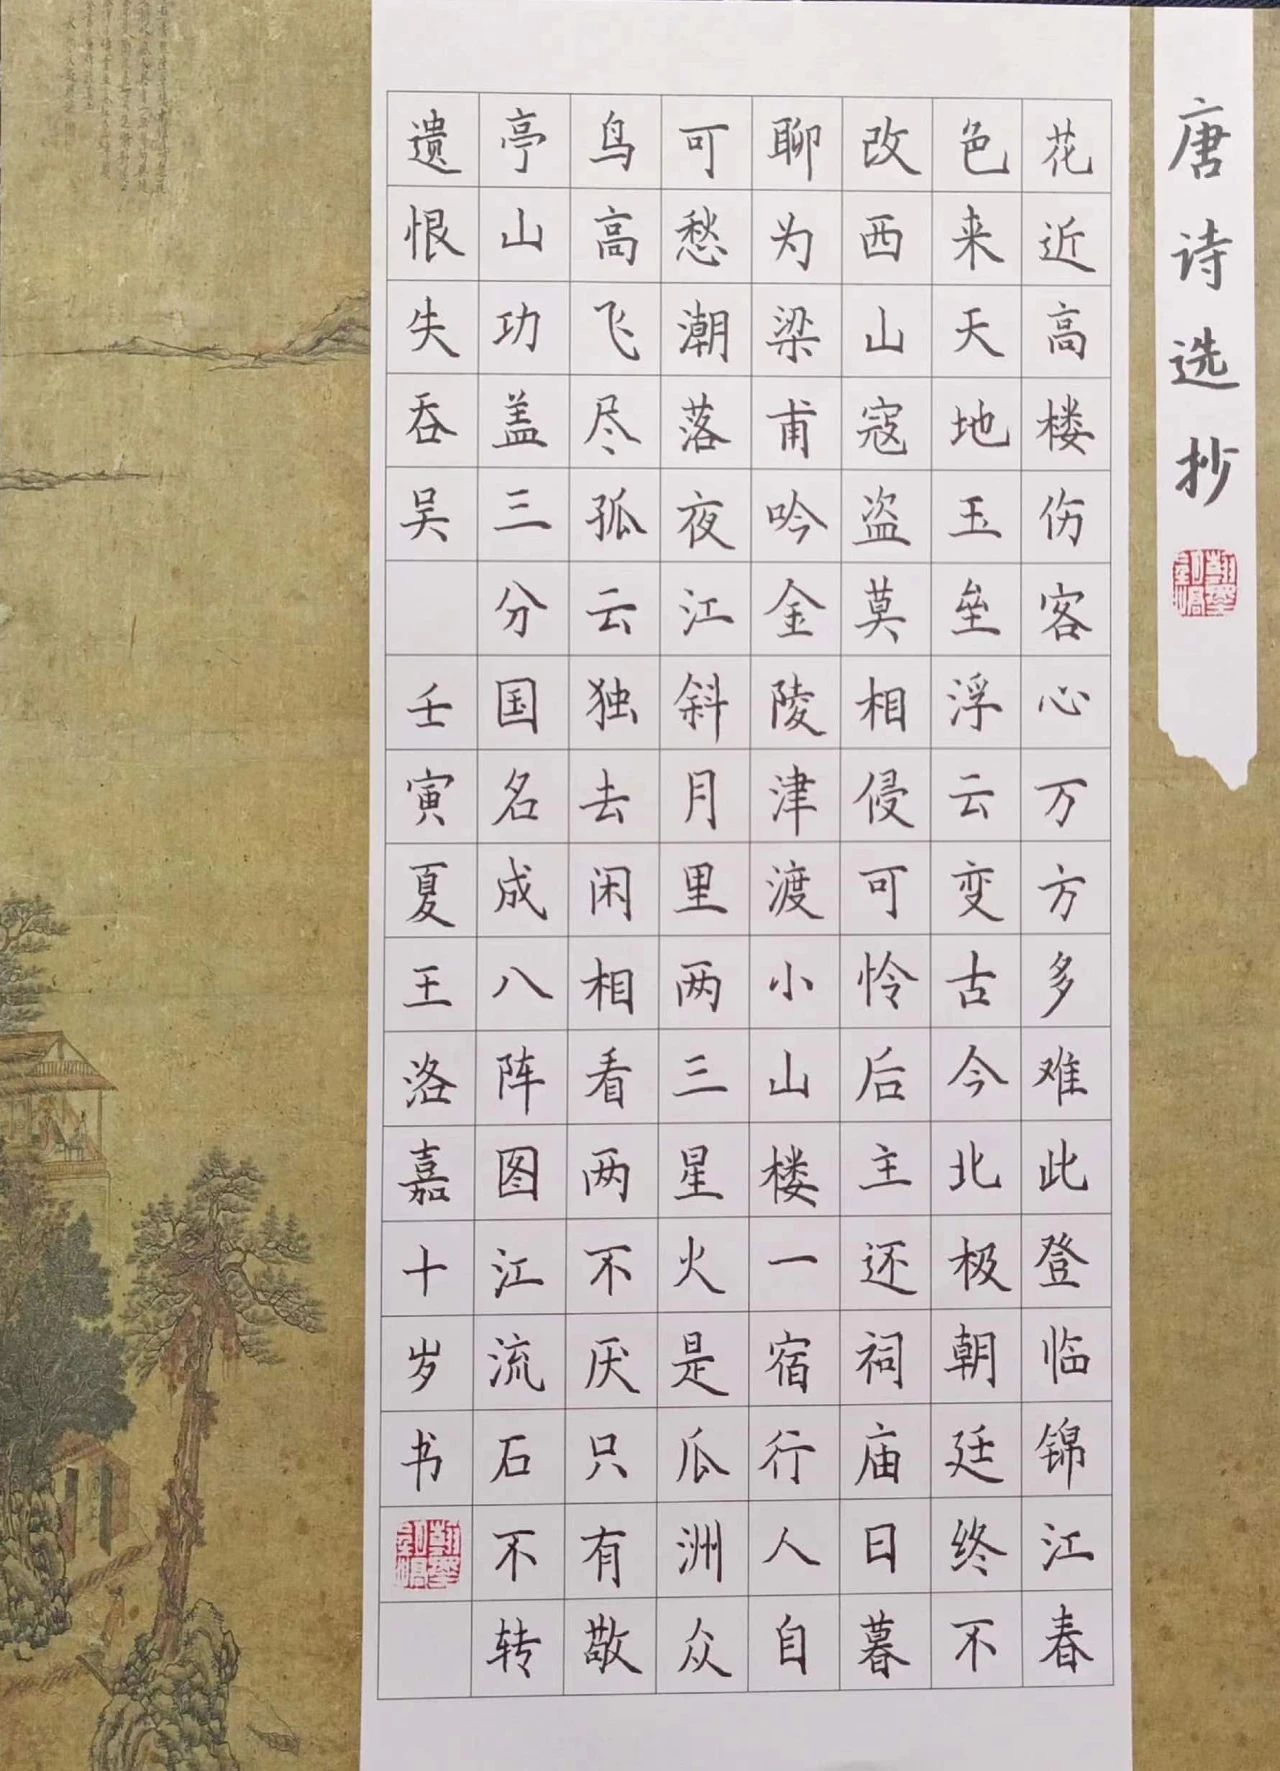 唐诗选抄
花近高楼伤客心万方多难此登临锦江春
色来天地玉垒浮云变古今北极朝廷终不
改西山寇盗莫相侵可怜后主还祠庙日暮
聊为梁甫吟金陵津渡小山楼一宿行人自
可愁潮落夜江斜月里两三星火是瓜洲众
鸟高飞尽孤云独去闲相看两不厌只有敬
亭山功盖三分国名成八阵图江流石不转
遗恨失吞吴 壬寅夏王洛嘉十岁书